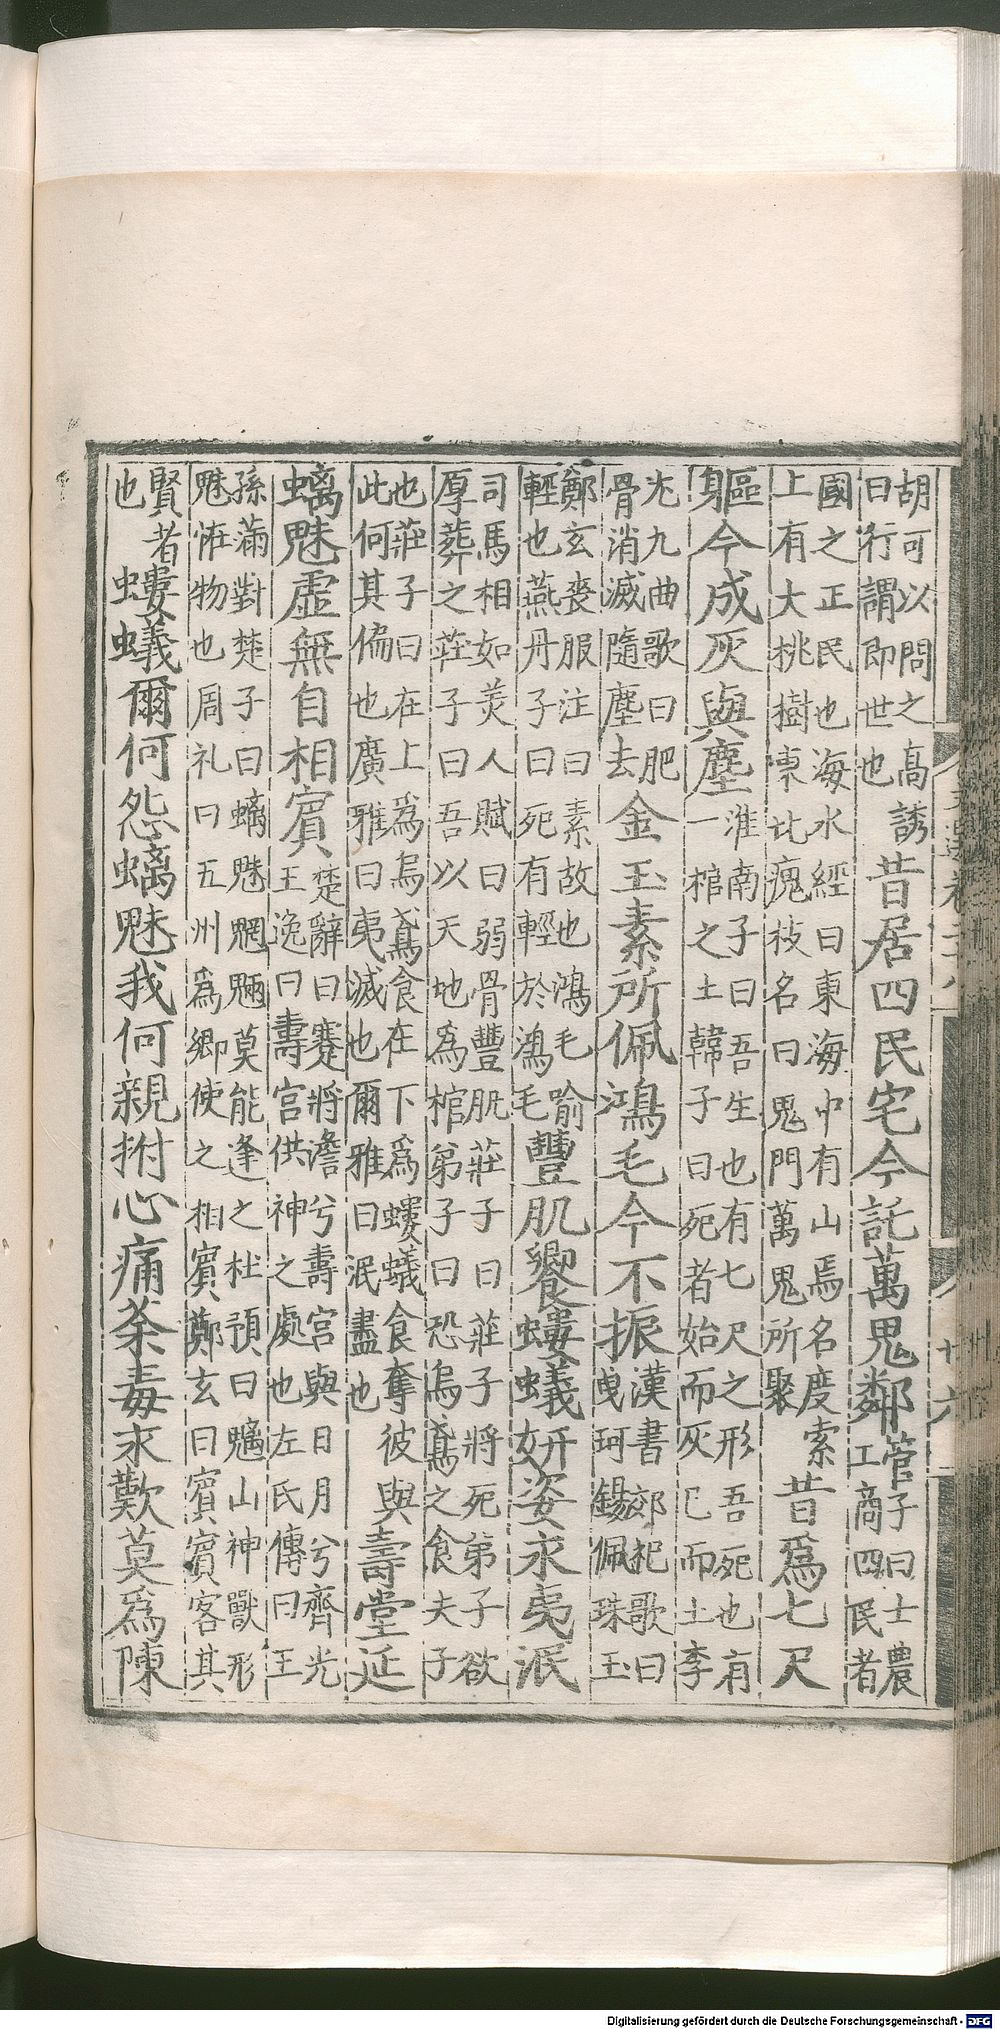 胡可以問之高誘
曰行謂即世也
昔居四民宅今託萬鬼鄰
管子曰士農
工商四民者
國之正民也海水經曰東海中有山焉名度索
上有大桃樹東北瘣枝名曰鬼門萬鬼所聚
昔爲七尺
軀今成灰與塵
淮南子曰吾生也有七尺之形吾死也有
一棺之土韓子曰死者始而灰已而土李
尤九曲歌曰肥
骨消滅隨塵去
金玉素所佩鴻毛今不振
漢書郊祀歌曰
曳珂錫佩珠玉
鄭玄喪服注曰素故也鴻毛喻
輕也燕丹子曰死有輕於鴻毛
豐肌饗螻蟻妍姿永夷泯
司馬相如美人賦曰弱骨豐肌莊子曰莊子將死弟子欲
厚葬之莊子曰吾以天地爲棺弟子曰恐烏鳶之食夫子
也莊子曰在上爲烏鳶食在下爲螻蟻食奪彼與
此何其偏也廣雅曰夷滅也爾雅曰泯盡也
壽堂延
螭魅虛無自相賓
楚辭曰蹇將澹兮壽宮與日月兮齊光
王逸曰壽宮供神之處也左氏傳曰王
孫滿對楚子曰螭魅魍魎莫能逢之杜預曰魑山神獸形
魅怪物也周礼曰五州爲鄉使之相賓鄭玄曰賓賓客其
賢者
也
螻蟻爾何怨螭魅我何親拊心痛荼毒永歎莫爲陳
Digitalisierung gefördert durch die Deutsche Forschungsgemeinschaft - DFG